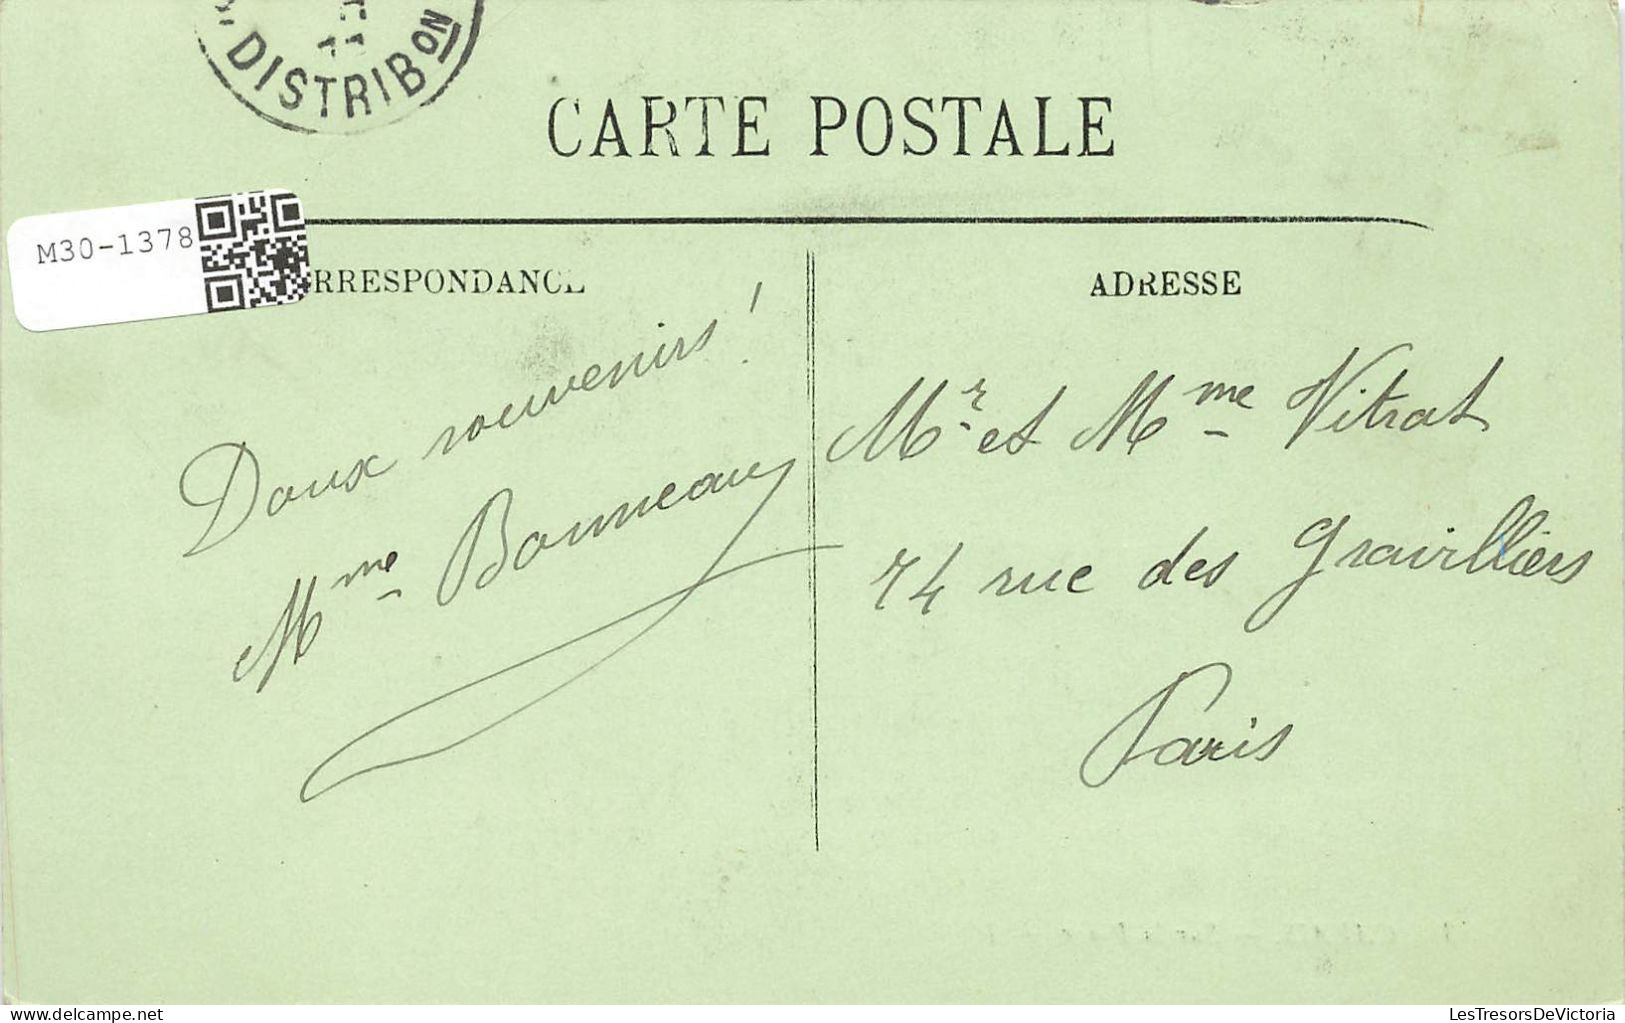 DISTRIBON
CARTE POSTALE
M30-1378
RRESPONDANCE
ADRESSE
Doux souvenirs!
Mme Bonneau
Mr et Mme Vitrat
74 rue des Gravilliers
Paris
delcampe.net
LesTresorsDeVictoria